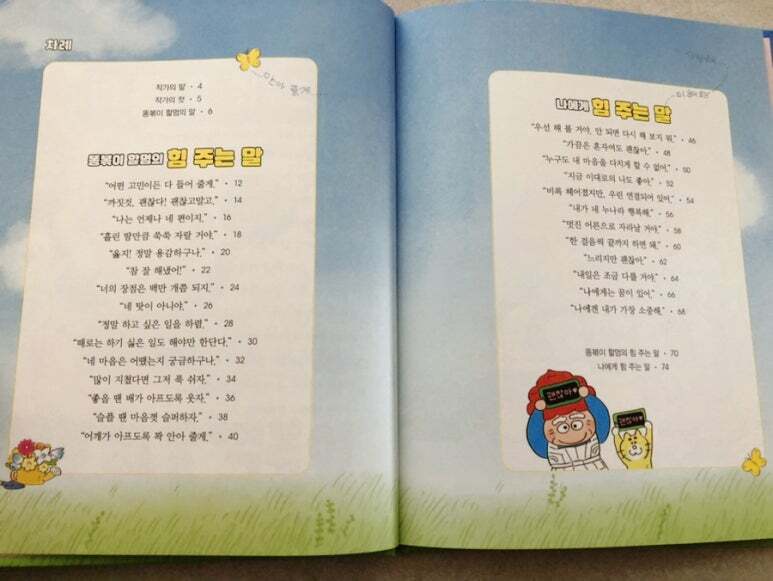 차례
안아 줄게
작가의 말 • 4
작가의 컷 • 5
똥볶이 할멈의 말 • 6
똥볶이 할멈의 힘 주는 말
“어떤 고민이든 다 들어 줄게.” • 12
“까짓것, 괜찮다! 괜찮고말고.” • 14
“나는 언제나 네 편이지.” • 16
“흘린 땀만큼 쑥쑥 자랄 거야.” • 18
“옳지! 정말 용감하구나.” • 20
“참 잘 해냈어!” • 22
“너의 장점은 백만 개쯤 되지.” • 24
“네 탓이 아니야.” • 26
“정말 하고 싶은 일을 하렴.” • 28
“때로는 하기 싫은 일도 해야만 한단다.” • 30
“네 마음은 어땠는지 궁금하구나.” • 32
“많이 지쳤다면 그저 푹 쉬자.” • 34
“좋을 땐 배가 아프도록 웃자.” • 36
“슬플 땐 마음껏 슬퍼하자.” • 38
“어깨가 아프도록 꽉 안아 줄게.” • 40
나에게 힘 주는 말
“우선 해 볼 거야. 안 되면 다시 해 보지 뭐.” • 46
“가끔은 혼자여도 괜찮아.” • 48
“누구도 내 마음을 다치게 할 수 없어.” • 50
“지금 이대로의 나도 좋아.” • 52
“비록 헤어졌지만, 우린 연결되어 있어.” • 54
“내가 네 누나라 행복해.” • 56
“멋진 어른으로 자라날 거야.” • 58
“한 걸음씩 끝까지 하면 돼.” • 60
“느리지만 괜찮아.” • 62
“내일은 조금 다를 거야.” • 64
“나에게는 꿈이 있어.” • 66
“나에겐 내가 가장 소중해.” • 68
똥볶이 할멈의 힘 주는 말 • 70
나에게 힘 주는 말 • 74
괜찮아♥
괜찮아♥